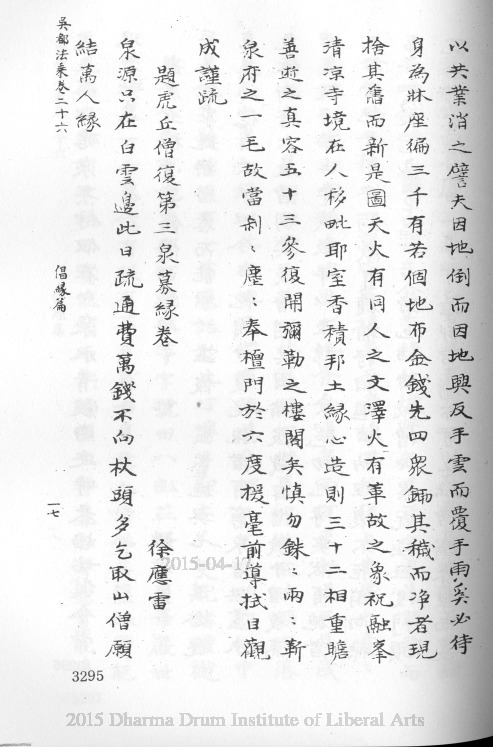 以共業消之譬夫因地倒而因地興反手雲而覆手雨奚必待
身為牀座徧三千有若個地布金錢先四眾鍤其穢而淨者現
捨其舊而新是圖天火有同人之文澤火有革故之象祝融峯
清凉寺境在人移毗耶室香積邦土緣心造則三十二相重瞻
善逝之真容五十三參復開彌勒之樓閣矣慎勿銖﹕兩﹕靳
泉府之一毛故當剎﹕塵﹕奉檀門於六度援毫前導拭目觀
成謹疏
題虎丘僧復第三泉募緣卷
徐應雷
泉源只在白雲邊此日疏通費萬錢不向杖頭多乞取山僧願
結萬人緣
吳都法乘卷二十六
倡緣篇
一七
3295
2015-04-17
2015 Dharma Drum Institute of Liberal Arts